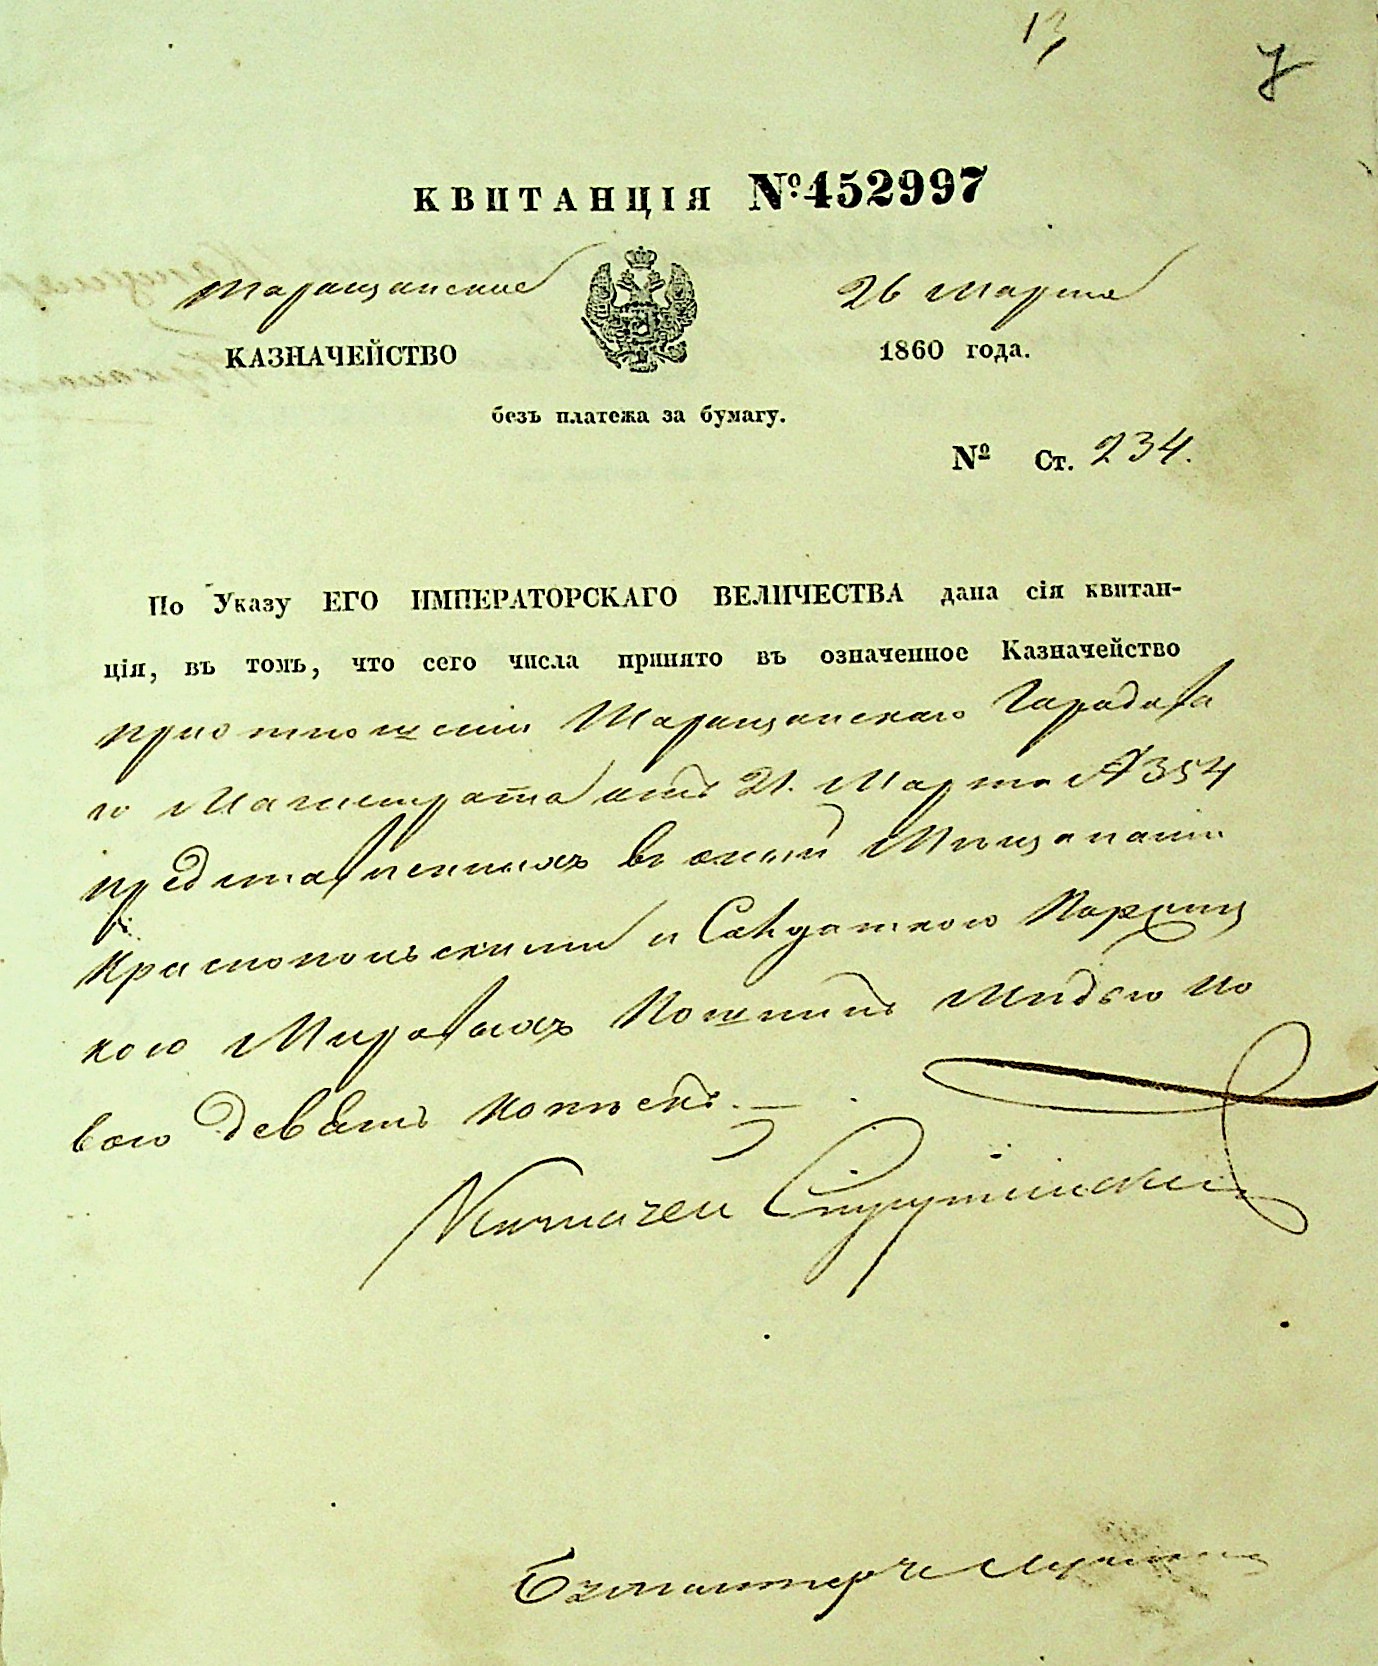 13
7
КВИТАНЦІЯ №452997
Таращанские
26 Марта
КАЗНАЧЕЙСТВО
1860 года.
безъ платежа за бумагу.
№ Ст. 234.
По Указу ЕГО ИМПЕРАТОРСКАГО ВЕЛИЧЕСТВА дана сія квитан-
ція, въ томъ, что сего числа принято въ означенное Казначейство
при отношеніи Таращанскаго Городова
го Магистрата отъ 21. Марта № 354
представленныхъ
и
кою Мировыхъ Пошлинъ
вою девять копѣекъ.
Казначей
Бухгалтеръ